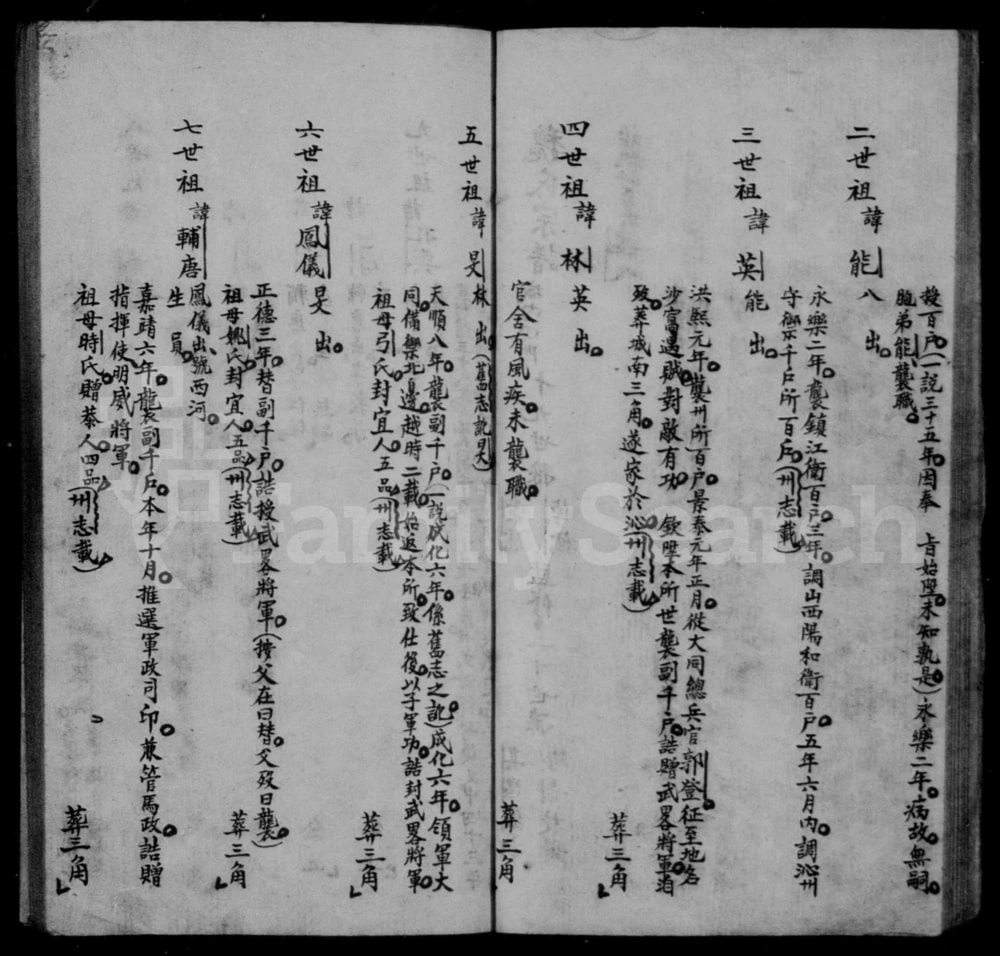 授百戶(一說三十五年因奉 旨始陞未知孰是)永樂二年病故無嗣
胞弟能襲職
二世祖諱能 八出
永樂二年襲鎮江衛百戶三年調山西陽和衛百戶五年六月內調沁州
守禦千戶所百戶(州志載)
三世祖諱英 能出
洪熙元年襲州所百戶景泰元年正月從大同總兵官郭登征至地名
沙窩遇賊對敵有功 欽陞本所世襲副千戶誥贈武畧將軍
歿葬城南三角遂家於沁(州志載) 葬三角
四世祖諱林 英出
官舍有風疾未襲職 葬三角
五世祖諱旻 林出(舊志訛旲)
天順八年襲副千戶(一說成化六年係舊志之訛)成化六年領軍大
同備禦北邊越時二載始返本所致仕後以子軍功誥封武畧將軍
祖母引氏封宜人五品(州志載) 葬三角
六世祖諱鳳儀 旻出
正德三年替副千戶誥授武畧將軍(按父在曰替父歿曰襲)
祖母姚氏封宜人五品(州志載) 葬三角
七世祖諱輔唐 鳳儀出號西河
生員
嘉靖六年襲副千戶本年十月推選軍政司印兼管馬政誥贈
指揮使明威將軍
祖母時氏贈恭人四品(州志載) 葬三角
FamilySearch